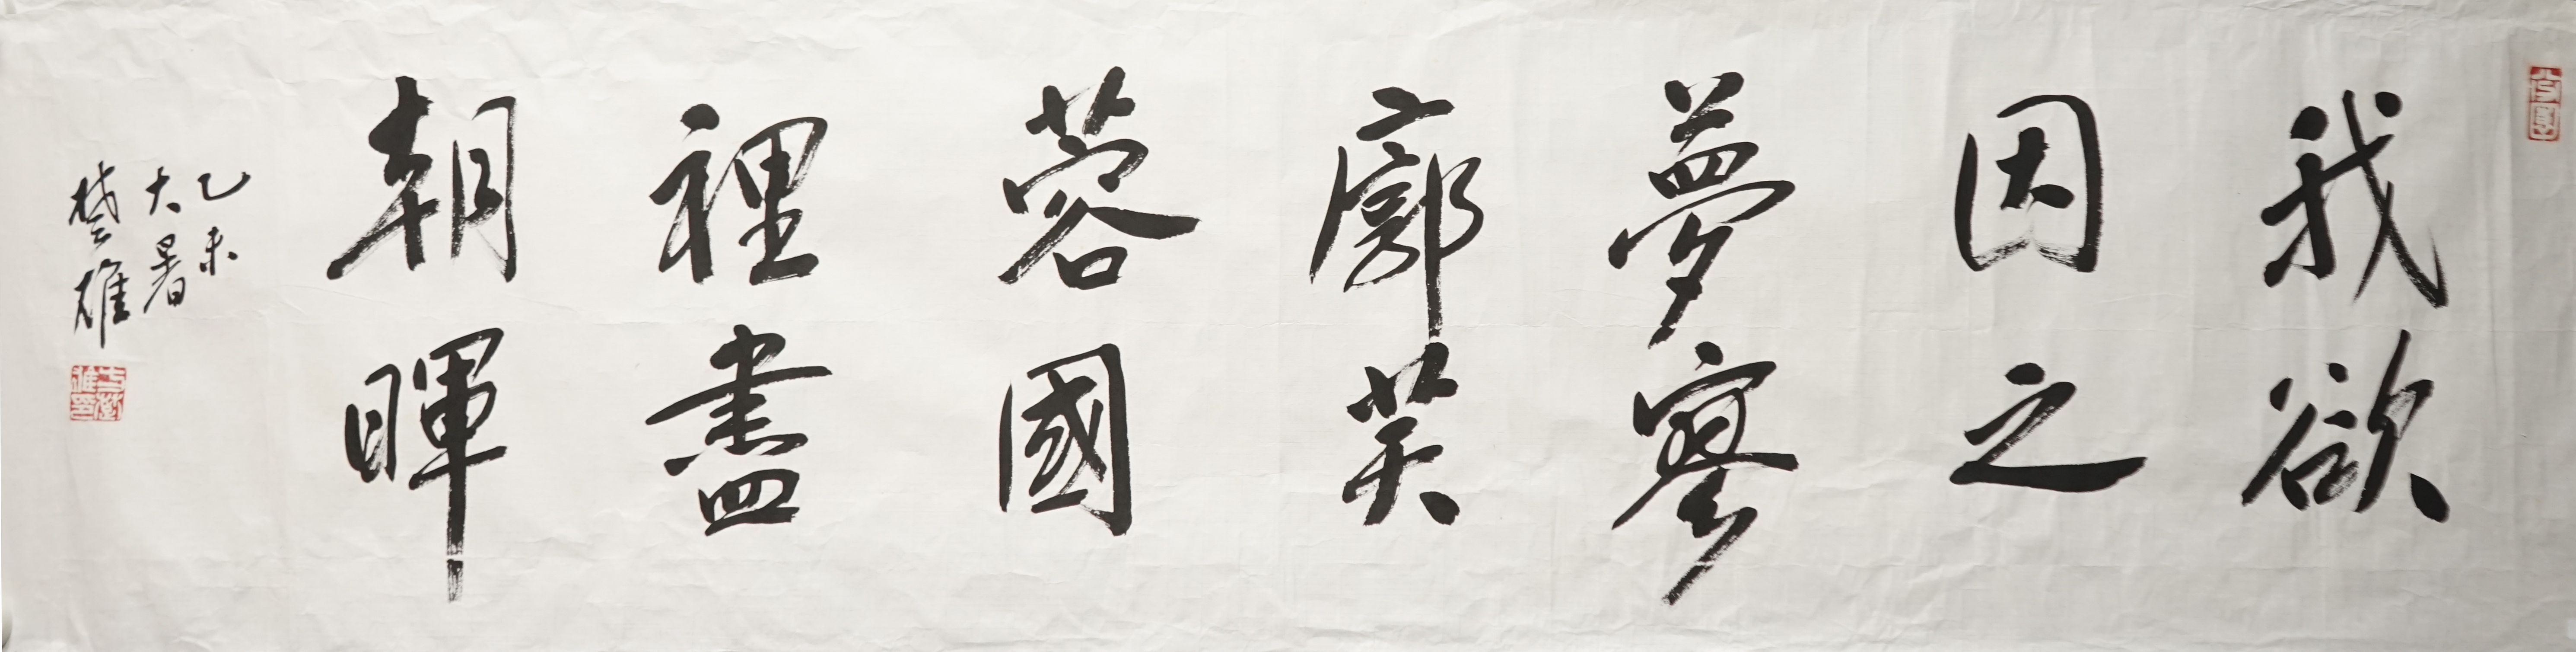 我欲
因之
夢寥
廓芙
蓉國
裡盡
朝暉
乙未
大暑
楚雄